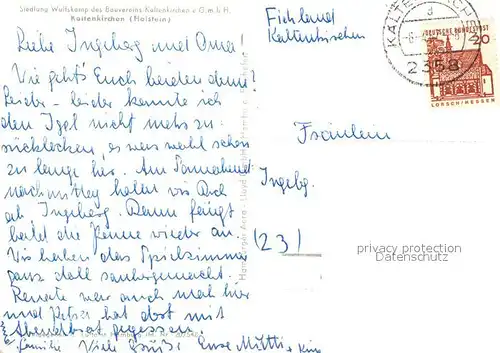 Siedlung Wulfskamp des Bauvereins Kaltenkirchen e.G.m.b.H.
Kaltenkirchen (Holstein)
Liebe Ingeborg und Oma!
Wie geht's Euch beiden denn?
Leider - leider konnte ich
den Igel nicht mehr zu-
rücklocken, es war wohl schon
zu lange hin. Am Sonnabend
nachmittag holen wir Dich
ab, Ingeborg. Dann fängt
bald die Penne wieder an.
Wir haben das Spielzimmer
ganz doll saubergemacht.
Renate war auch mal hier
und Peter hat dort mit
Abendbrot gegessen.
Familie Viele Grüße Eure Mutti +
Hamburger Aero-Lloyd
Fichland
Kaltenkirchen
KALTENKIRCHEN
2358
DEUTSCHE BUNDESPOST
20
LORSCH/HESSEN
Fräulein
Ingebg.
(23)
privacy protection
Datenschutz